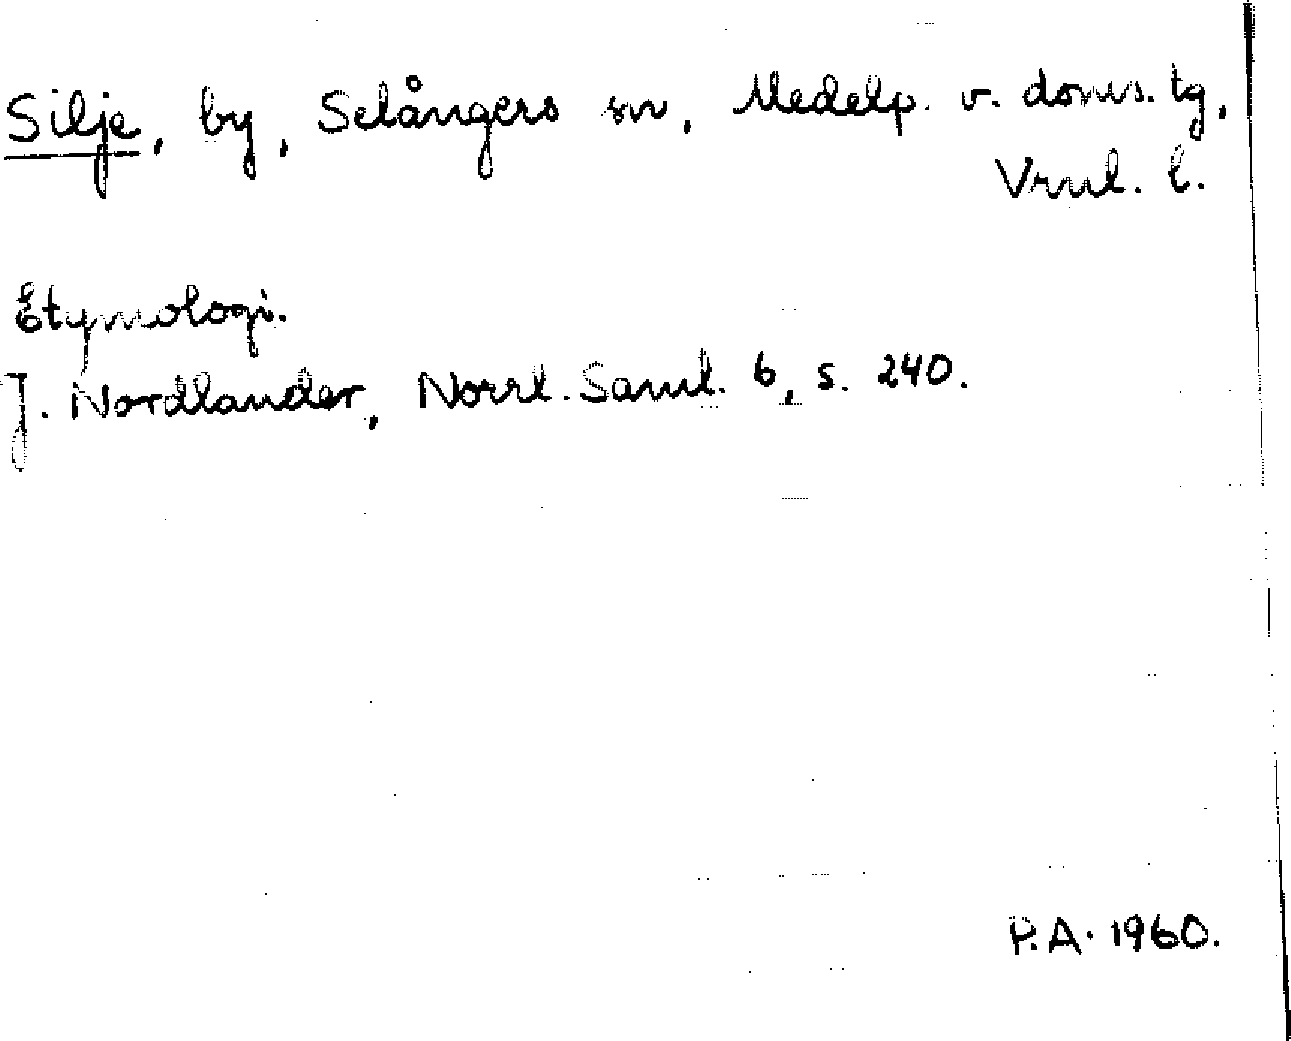 Silje, by, Selångers sn, Medelp. v. doms. tg,
Vrnl. l.
Etymologi.
J. Nordlander, Norrl. Saml. 6, s. 240.
P.A. 1960.